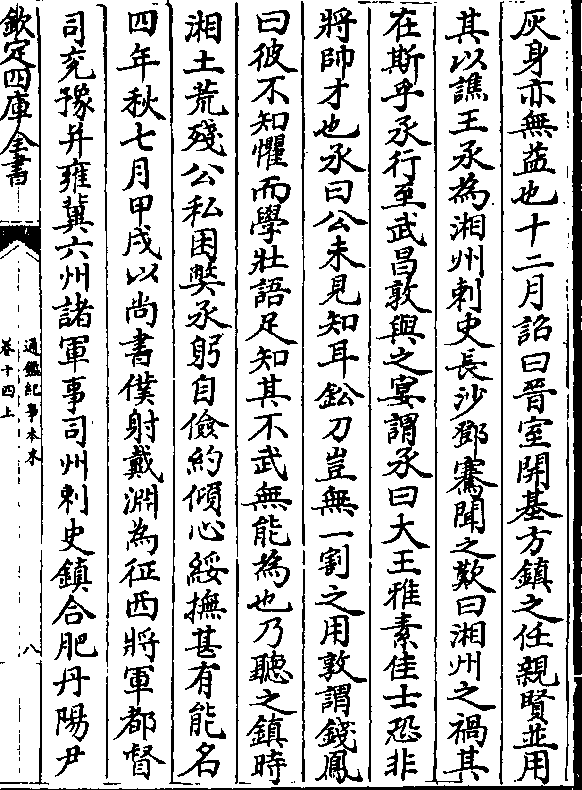 灰身亦無益也十二月詔曰晉室開基方鎮之任親賢並用
其以譙王承為湘州刺史長沙鄧騫聞之歎曰湘州之禍其
在斯乎承行至武昌敦與之宴謂承曰大王雅素佳士恐非
將帥才也承曰公未見知耳鉛刀豈無一割之用敦謂錢鳳
曰彼不知懼而學壯語足知其不武無能為也乃聽之鎮時
湘土荒殘公私困弊承躬自儉約傾心綏撫甚有能名
四年秋七月甲戌以尚書僕射戴淵為征西將軍都督
司兖豫并雍冀六州諸軍事司州刺史鎮合肥丹陽尹
欽定四庫全書
通鑑紀事本末
卷十四上
八